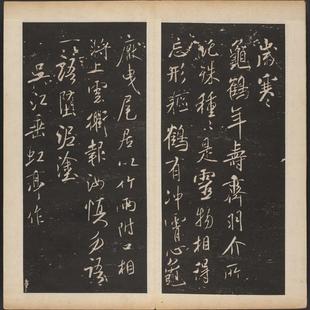 歲寒
龜鶴年壽齊羽介所
託殊種〻是靈物相得
忘形軀鶴有冲霄心龜
厭曳尾居以竹兩附口相
將上雲衢報汝慎勿語
一語墮泥塗
吳江垂虹亭作